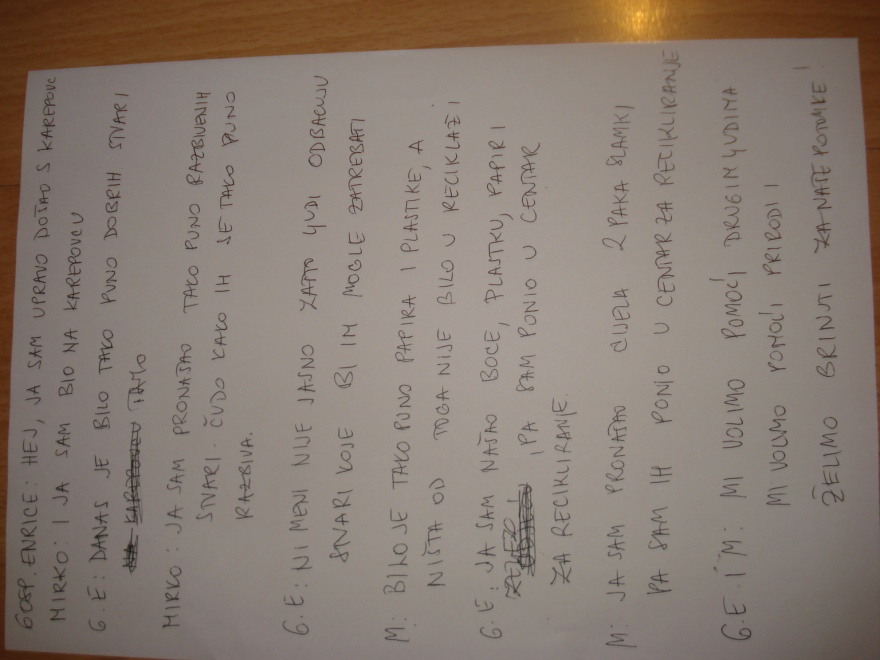 GOSP. ENRICE: HEJ, JA SAM UPRAVO DOŠAO S KAREPOVC
MIRKO: I JA SAM BIO NA KAREPOVCU
G.E: DANAS JE BILO TAKO PUNO DOBRIH STVARI
TAMO
MIRKO: JA SAM PRONAŠAO TAKO PUNO RAZBIVENIH
STVARI. ČUDO KAKO IH SE TAKO PUNO
RAZBIVA.
G.E: NI MENI NIJE JASNO ZAŠTO LJUDI ODBACUJU
STVARI KOJE BI IM MOGLE ZATREBATI
M: BILO JE TAKO PUNO PAPIRA I PLASTIKE, A
NIŠTA OD TOGA NIJE BILO U RECIKLAŽI.
G.E: JA SAM NAŠAO BOCE, PLASTIKU, PAPIR I
ŽELJEZO, PA SAM PONIO U CENTAR
ZA RECIKLIRANJE.
M: JA SAM PRONAŠAO CIJELA 2 PAKA SLAMKI
PA SAM IH PONIO U CENTAR ZA RECIKLIRANJE
G.E I M: MI VOLIMO POMOĆI DRUGIM LJUDIMA
MI VOLIMO POMOĆI PRIRODI I
ŽELIMO BRINUTI ZA NAŠE POTOMKE!